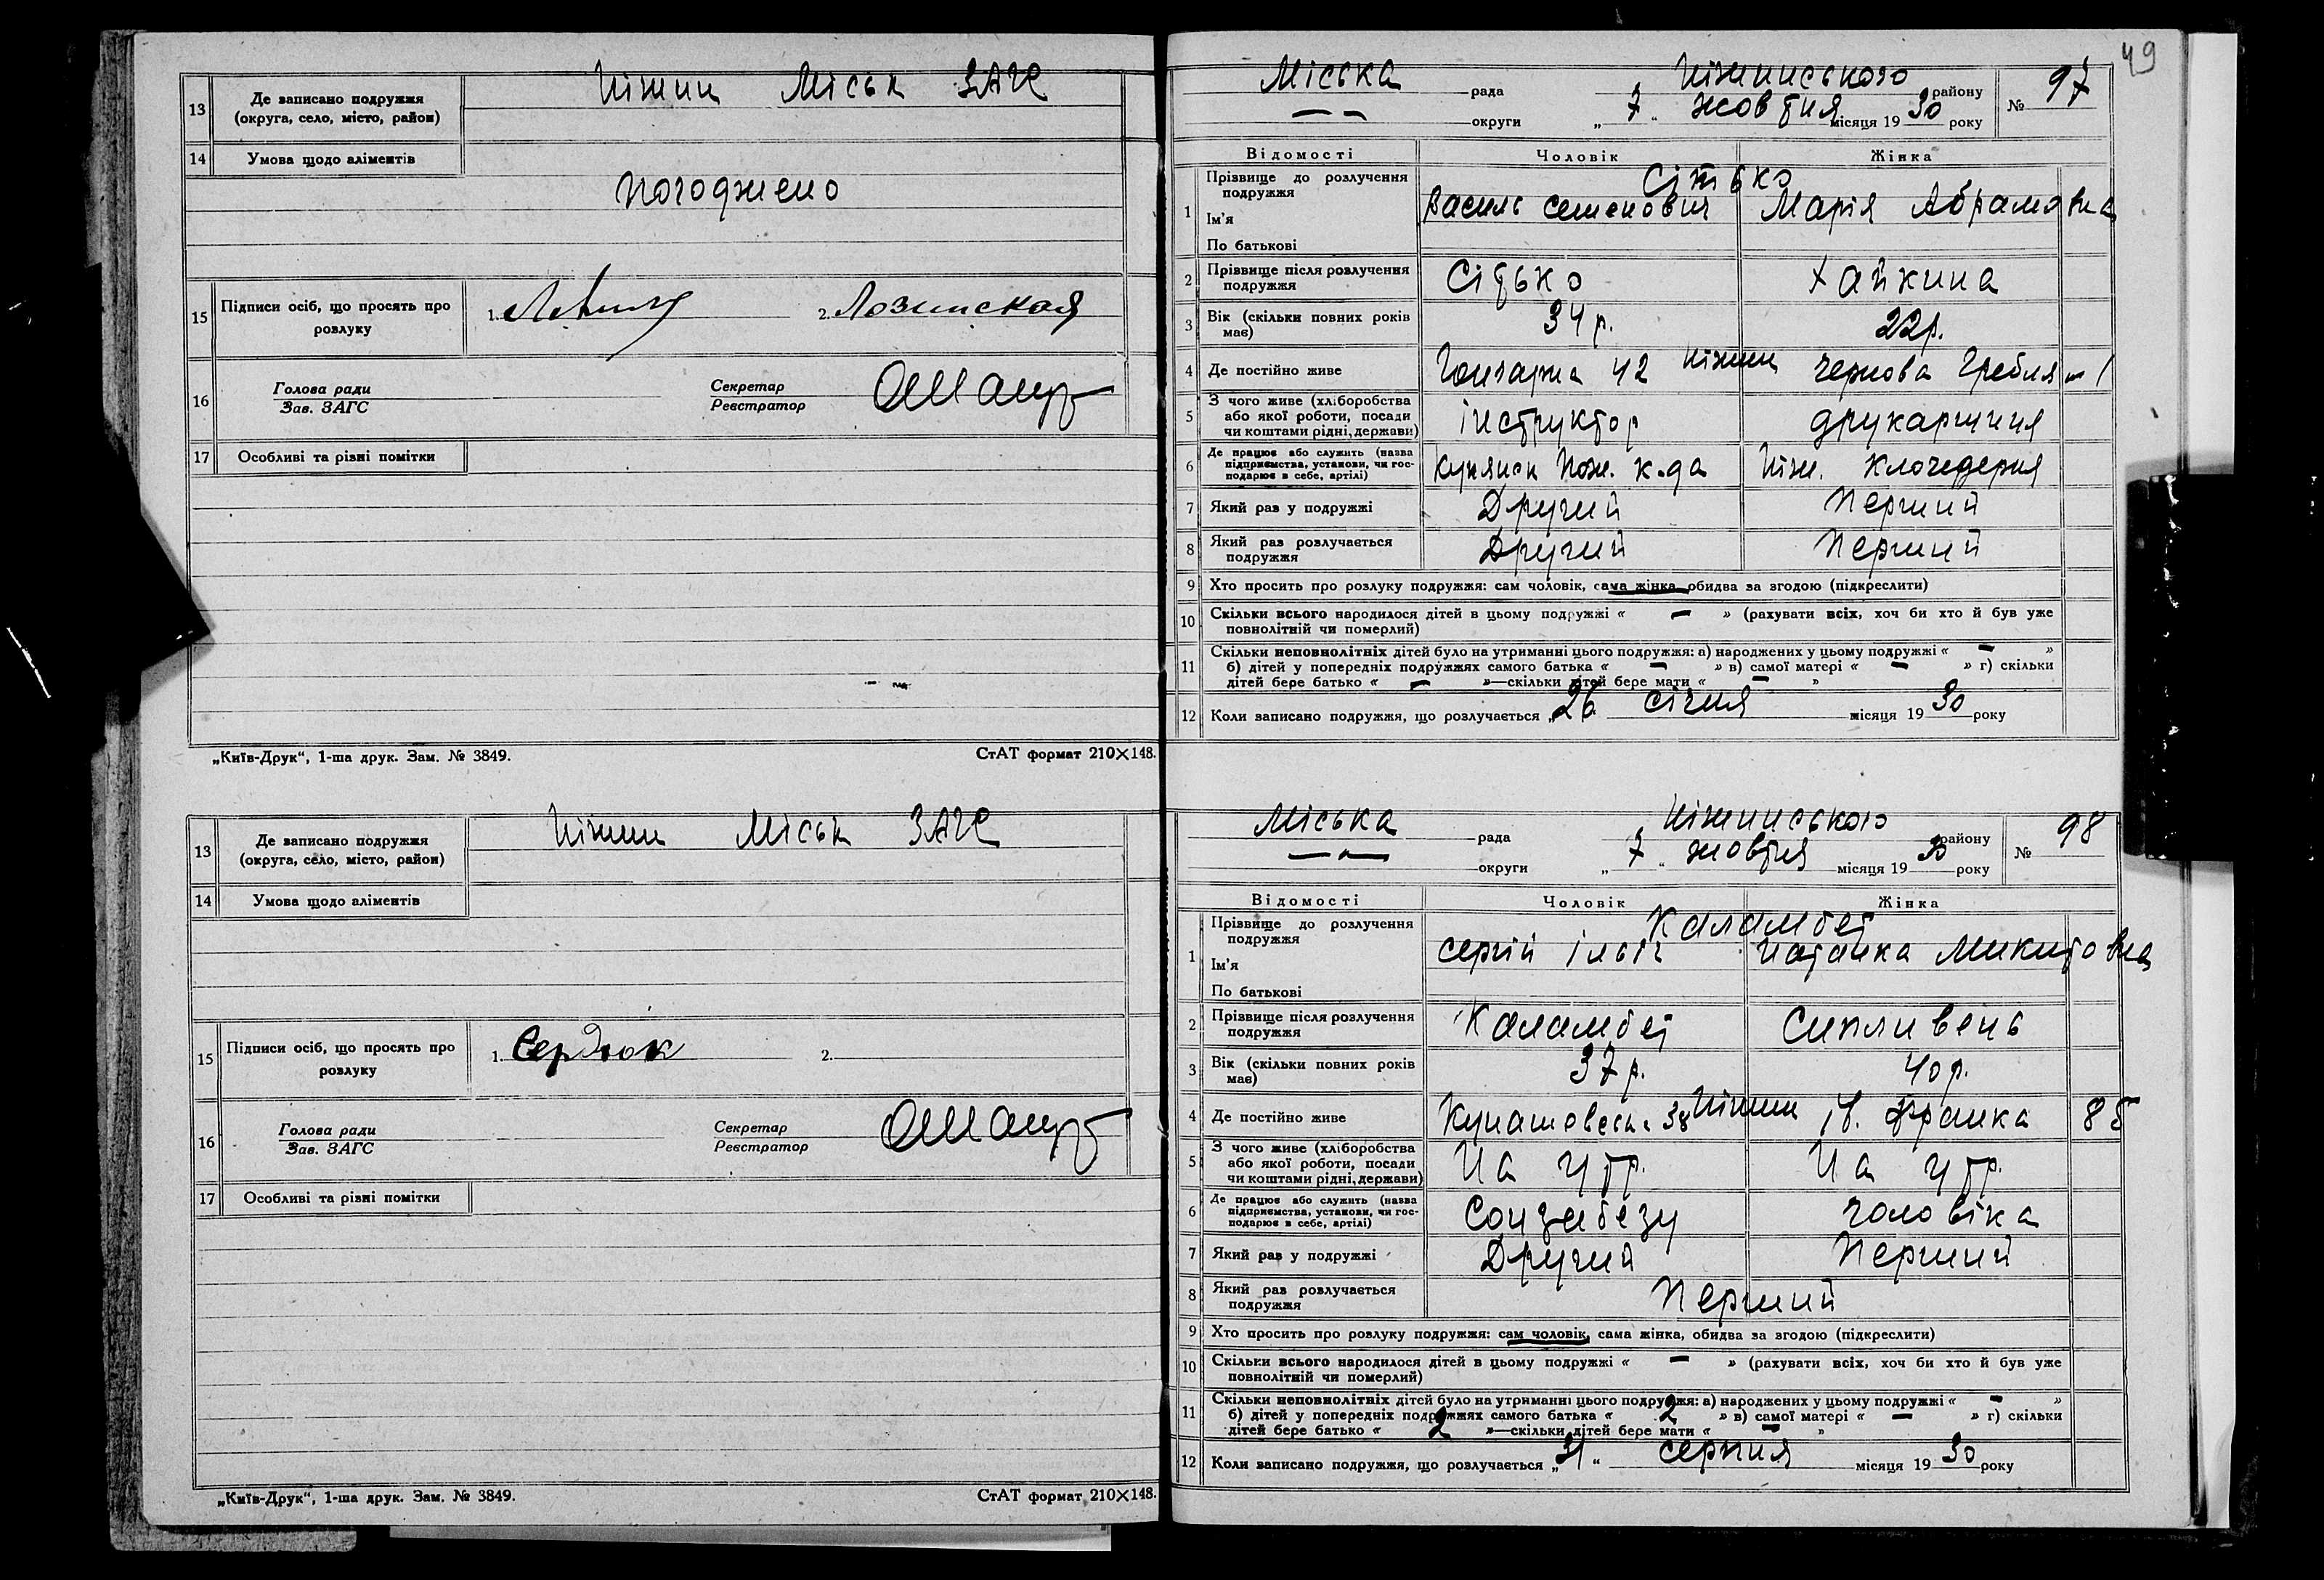 49
13 Де записано подружжя (округа, село, місто, район) Ніжин Міськ ЗАГС
14 Умова щодо аліментів
Погоджено
15 Підписи осіб, що просять про розлуку 1. 2. Лозинская
16 Голова ради Зав. ЗАГС Секретар Реєстратор
17 Особливі та різні помітки
„Київ-Друк“, 1-ша друк. Зам. № 3849. СтАТ формат 210×148.
13 Де записано подружжя (округа, село, місто, район) Ніжин Міськ ЗАГС
14 Умова щодо аліментів
15 Підписи осіб, що просять про розлуку 1. Сердюк 2.
16 Голова ради Зав. ЗАГС Секретар Реєстратор
17 Особливі та різні помітки
„Київ-Друк“, 1-ша друк. Зам. № 3849. СтАТ формат 210×148.
Міська рада Ніжинського району № 97
— — округи „7“ жовтня місяця 1930 року
Відомості Чоловік Жінка
1 Прізвище до розлучення подружжя Сітько
Ім’я Василь Семенович Марія Абрамовна
По батькові
2 Прізвище після розлучення подружжя Сітько Хайкина
3 Вік (скільки повних років має) 34 р. 22 р.
4 Де постійно живе 42 Ніжин Чернова Гребля 1
5 З чого живе (хліборобства або якої роботи, посади чи коштами рідні, держави) інструктор друкарниця
6 Де працює або служить (назва підприємства, установи, чи господарює в себе, артілі) Пож. к-да Ніж.
7 Який раз у подружжі Другий Перший
8 Який раз розлучається подружжя Другий Перший
9 Хто просить про розлуку подружжя: сам чоловік, сама жінка, обидва за згодою (підкреслити)
10 Скільки всього народилося дітей в цьому подружжі « — » (рахувати всіх, хоч би хто й був уже повнолітній чи померлий)
11 Скільки неповнолітніх дітей було на утриманні цього подружжя: а) народжених у цьому подружжі « — »
б) дітей у попередніх подружжях самого батька « — » в) самої матері « — » г) скільки
дітей бере батько « — »—скільки дітей бере мати « — »
12 Коли записано подружжя, що розлучається „26 січня місяця 1930 року
Міська рада Ніжинського району № 98
— — округи „7“ жовтня місяця 1930 року
Відомості Чоловік Жінка
1 Прізвище до розлучення подружжя Каламбет
Ім’я Сергій Ільіч Наталка Микитовна
По батькові
2 Прізвище після розлучення подружжя Каламбет Сипливець
3 Вік (скільки повних років має) 37 р. 40 р.
4 Де постійно живе 38 Ніжин Ів. Франка 85
5 З чого живе (хліборобства або якої роботи, посади чи коштами рідні, держави) На утр. На утр.
6 Де працює або служить (назва підприємства, установи, чи господарює в себе, артілі) чоловіка
7 Який раз у подружжі Другий Перший
8 Який раз розлучається подружжя Перший
9 Хто просить про розлуку подружжя: сам чоловік, сама жінка, обидва за згодою (підкреслити)
10 Скільки всього народилося дітей в цьому подружжі « — » (рахувати всіх, хоч би хто й був уже повнолітній чи померлий)
11 Скільки неповнолітніх дітей було на утриманні цього подружжя: а) народжених у цьому подружжі « — »
б) дітей у попередніх подружжях самого батька « 2 » в) самої матері « — » г) скільки
дітей бере батько « 2 »—скільки дітей бере мати « — »
12 Коли записано подружжя, що розлучається „31“ серпня місяця 1930 року